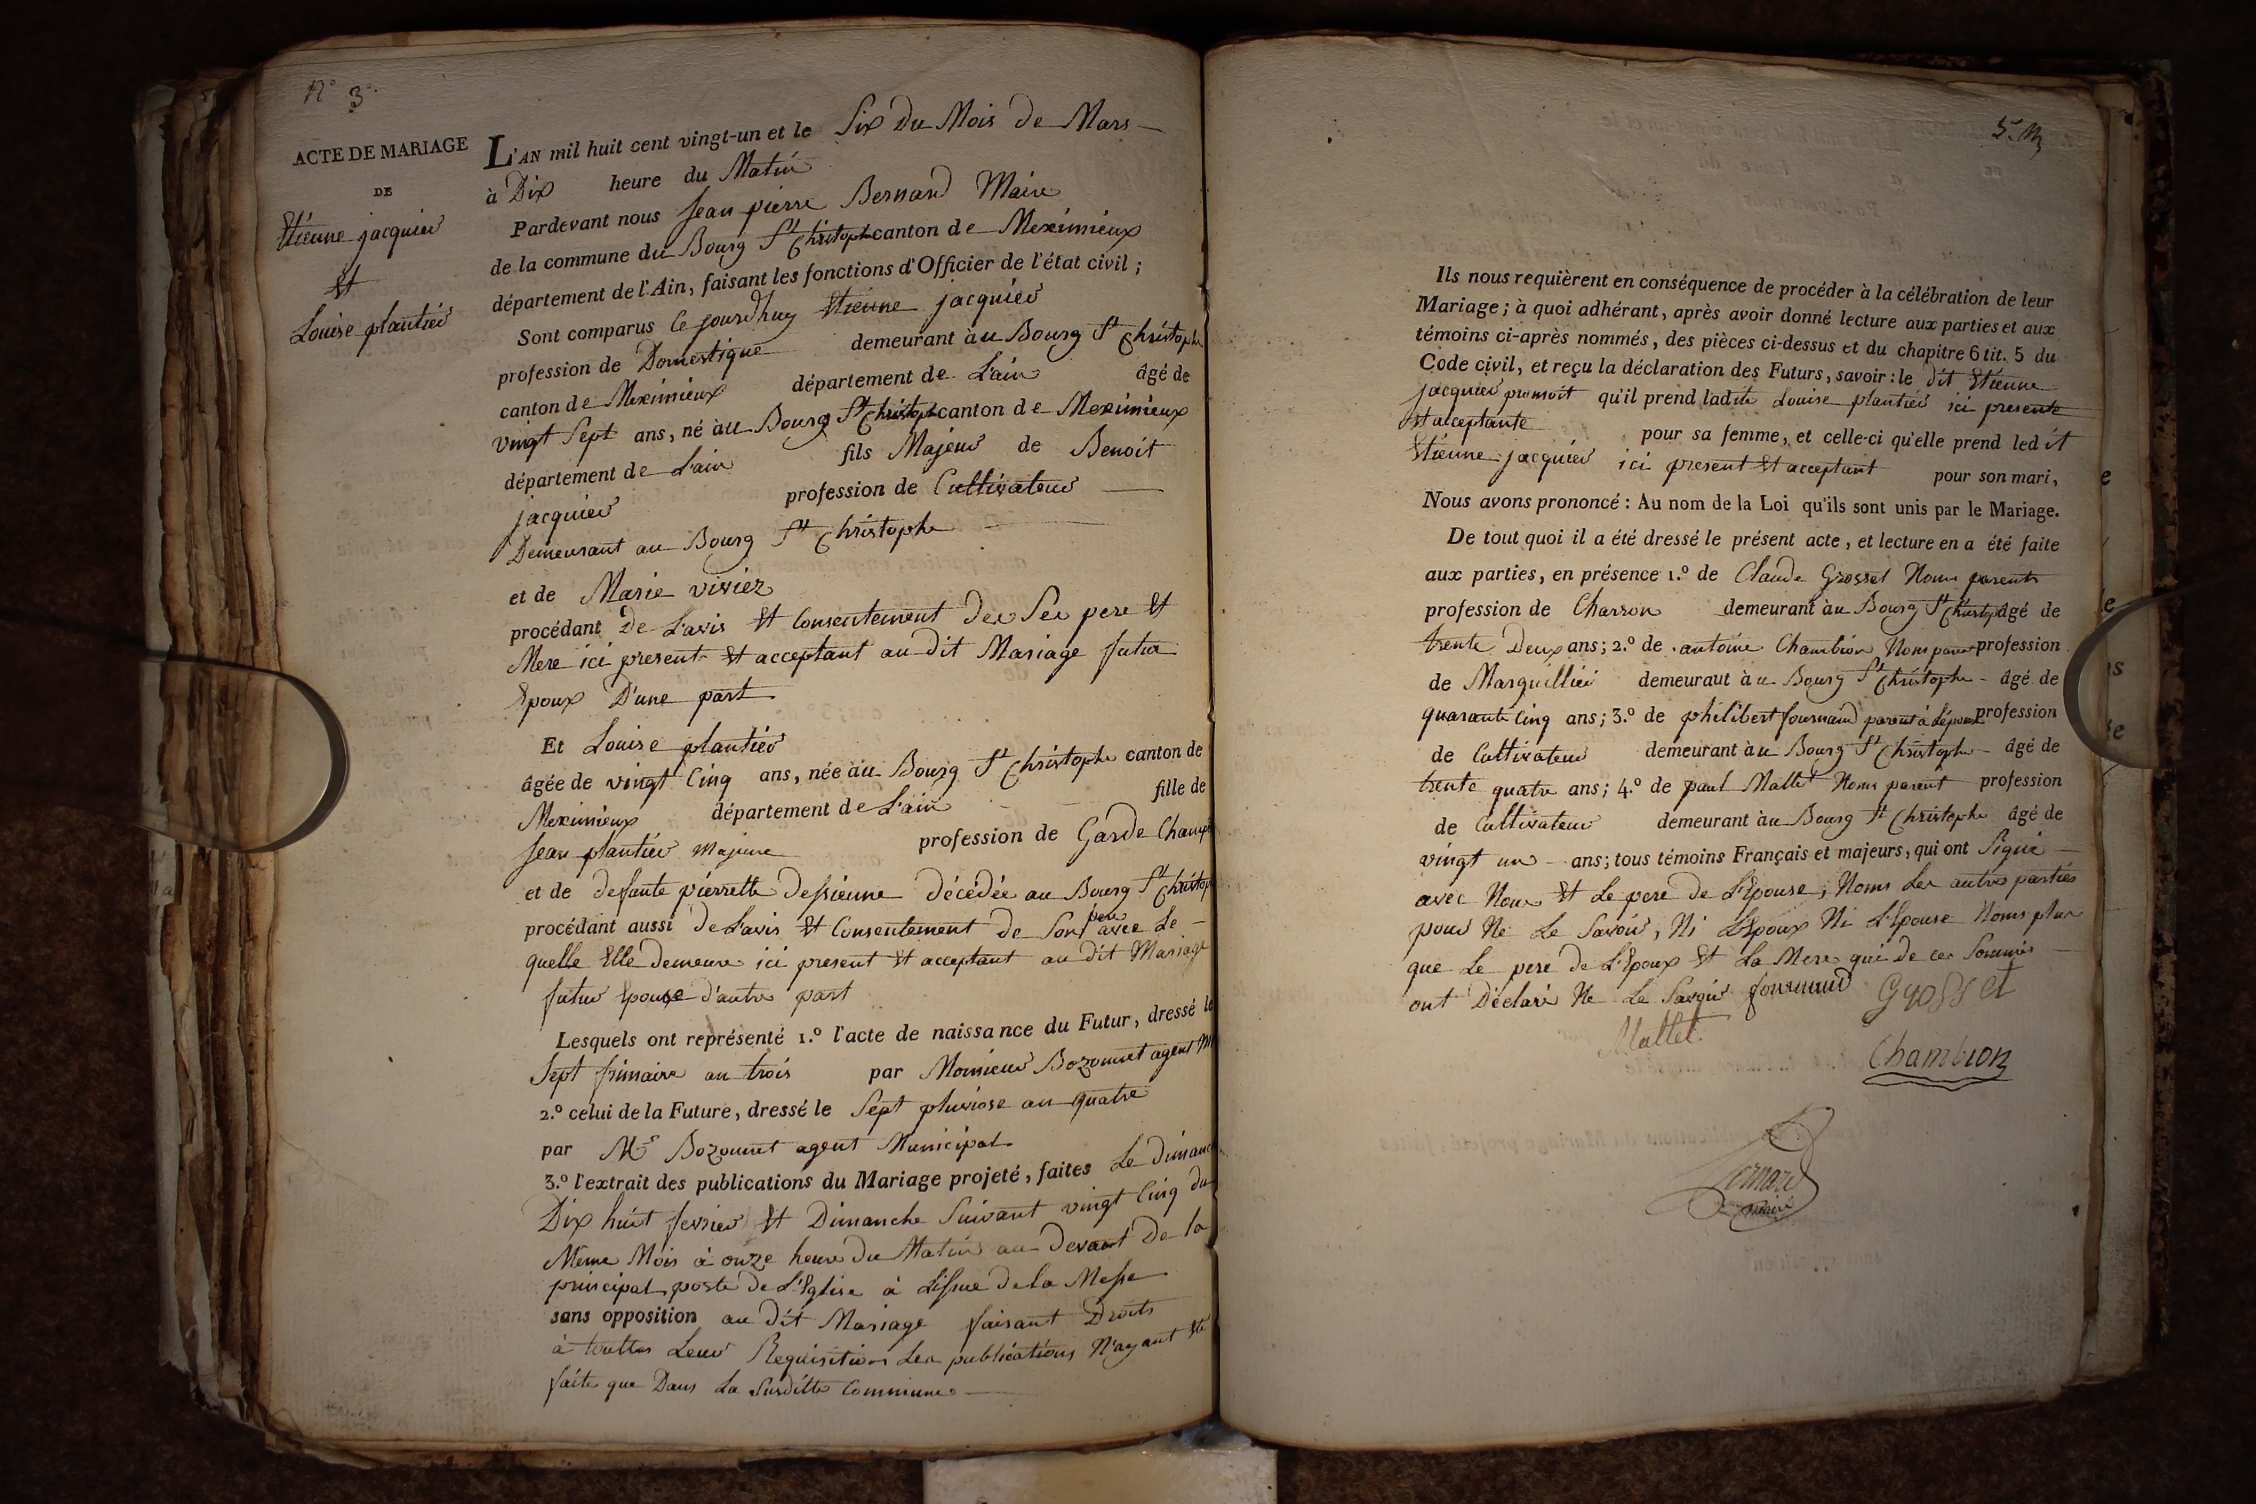 N° 3.
ACTE DE MARIAGE
DE
Etienne jacquier
Et
Louise plantier
L'AN mil huit cent vingt-un et le Six Du Mois de Mars
à Dix heure du Matin
Pardevant nous Jean pierre Bernard Maire
de la commune du Bourg St Christophe canton de Meximieux
département de l'Ain, faisant les fonctions d'Officier de l'état civil ;
Sont comparus Ce jourdhuy Etienne jacquier
profession de Domestique demeurant au Bourg St Christophe
canton de Meximieux département de L'ain âgé de
vingt Sept ans, né au Bourg St Christophe canton de Meximieux
département de L'ain fils Majeur de Benoit
jacquier profession de Cultivateur
Demeurant au Bourg St Christophe
et de Marie viviez
procédant De L'avis Et Consentement des Ses pere Et
Mere ici present Et acceptant au dit Mariage futur
Epoux D'une part
Et Louise plantier
âgée de vingt Cinq ans, née au Bourg St Christophe canton de
Meximieux département de L'ain fille de
Jean plantier Majeure profession de Garde Champ
et de defunte pierrette dessienne décédée au Bourg St Christop
procédant aussi de L'avis Et Consentement de Son pere avec Le
quelle Elle demeure ici present Et acceptant au dit Mariage
futur Epouse d'autre part
Lesquels ont représenté 1.° l'acte de naissance du Futur, dressé le
Sept frimaire an trois par Monsieur Bozonnet agent M
2.° celui de la Future, dressé le Sept pluviose an quatre
par Mr Bozonnet agent Municipal
3.° l'extrait des publications du Mariage projeté, faites Le dimanc
Dix huit fevrier Et Dimanche Suivant vingt Cinq du
Meme Mois à onze heure du Matin au devant De la
principal porte de L'Eglise à L'issue de la Messe
sans opposition au dit Mariage faisant Droits
à touttes Leur Requisition Les publications N'ayant Eté
faite que Dans La Surditte Commune
5. M
Ils nous requièrent en conséquence de procéder à la célébration de leur
Mariage ; à quoi adhérant, après avoir donné lecture aux parties et aux
témoins ci-après nommés, des pièces ci-dessus et du chapitre 6 tit. 5 du
Code civil, et reçu la déclaration des Futurs, savoir : le dit Etienne
jacquier promoit qu'il prend ladite Louise plantier ici presente
Et acceptante pour sa femme, et celle-ci qu'elle prend ledit
Etienne jacquier ici present Et acceptant pour son mari,
Nous avons prononcé : Au nom de la Loi qu'ils sont unis par le Mariage.
De tout quoi il a été dressé le présent acte, et lecture en a été faite
aux parties, en présence 1.° de Claude Grosset Nons parents
profession de Charron demeurant au Bourg St Christop âgé de
trente Deux ans ; 2.° de antoine Chambion Nons parent profession
de Marguillier demeuraut au Bourg St Christophe âgé de
quarante Cinq ans ; 3.° de philibert fournand parent à L'époux profession
de Cultivateur demeurant au Bourg St Christophe âgé de
trente quatre ans ; 4.° de paul Mallet Nons parent profession
de Cultivateur demeurant au Bourg St Christophe âgé de
vingt un ans ; tous témoins Français et majeurs, qui ont Signé
avec Nous Et Le pere de L'Epouse, Nons Les autres parties
pour Ne Le Savoir, Ni L'Epoux Ni L'Epouse Nons plus
que Le pere de L'Epoux Et La Mere qui de ce Sommés
ont Déclaré Ne Le Savoir fournand Grosset
Mallet
Chambion
Bernard
maire